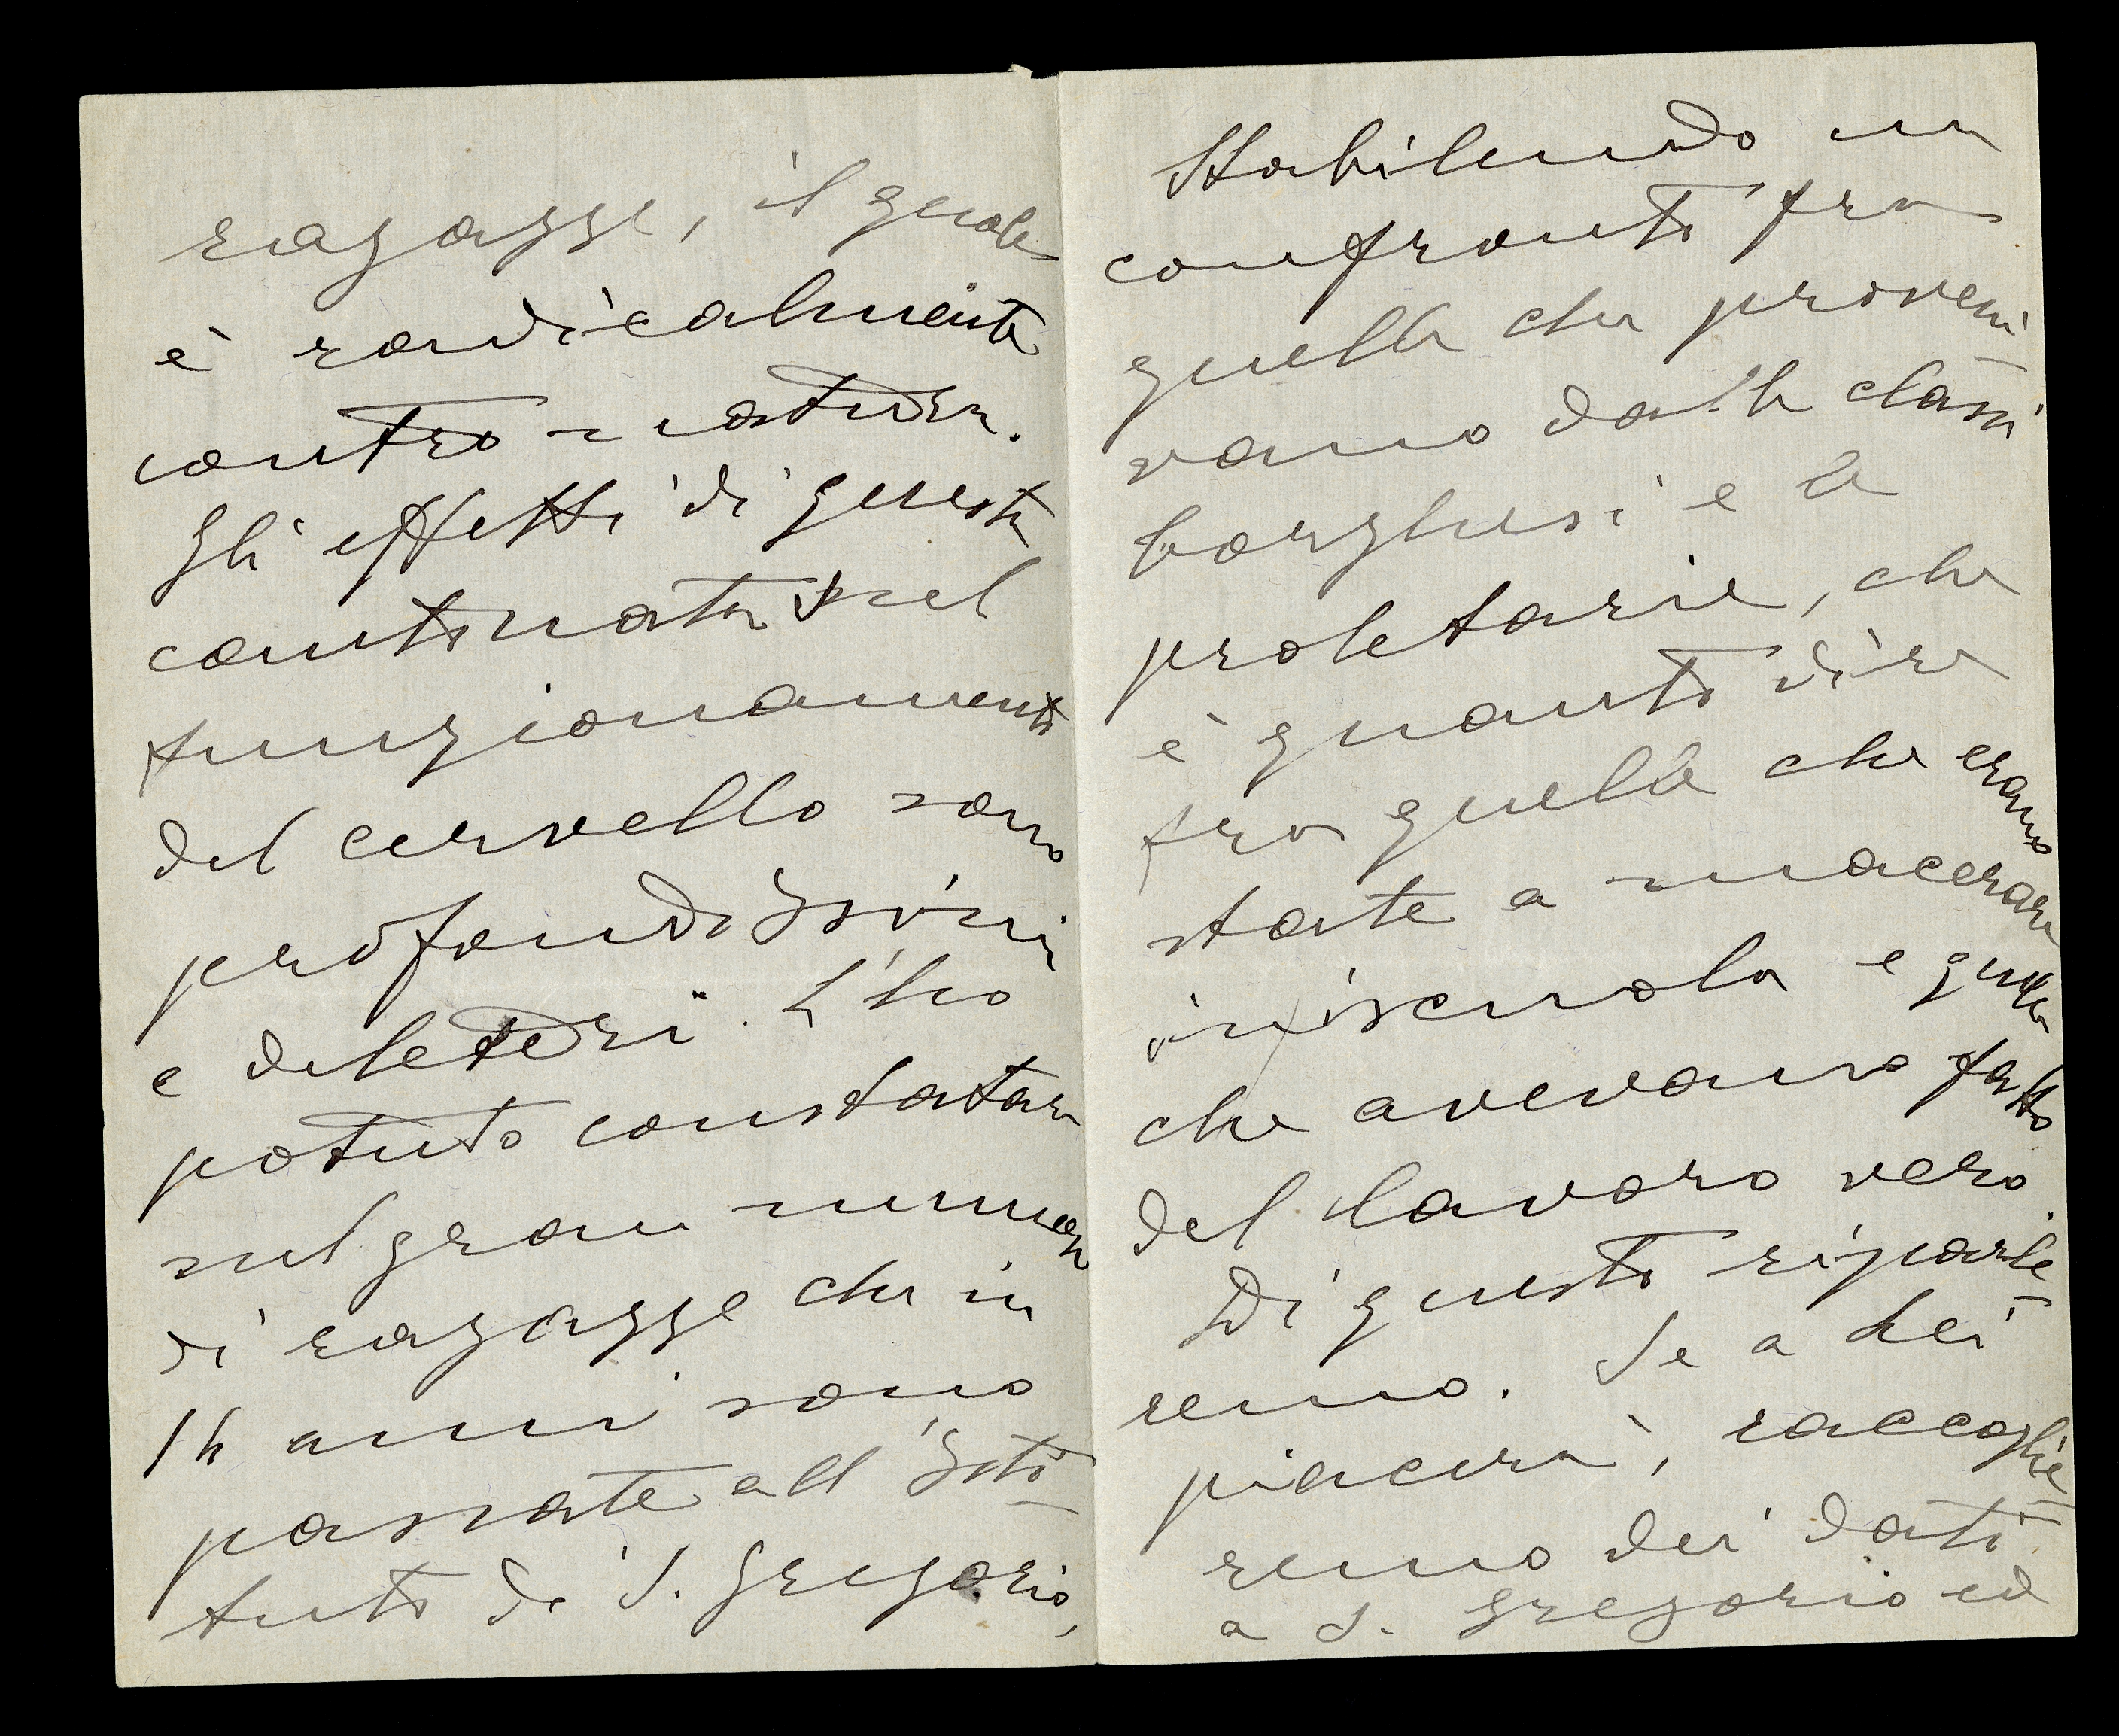 ragazze, il quale
è radicalmente
contro natura.
Gli effetti di questo
contronatura sul
funzionamento
del cervello sono
profondissimi
e deleteri. L'ho
potuto constatare
sul gran numero
di ragazze che in
14 anni sono
passate all'Isti-
tuto di S. Gregorio,
stabilendo un
confronto fra
quelle che proveni-
vano dalle classi
borghesi e le
proletarie, che
è quanto dire
fra quelle che erano
state a macerarsi
in iscuola e quelle
che avevano fatto
del lavoro vero.
Di questo riparle-
remo. Se a Lei
piacerà, raccoglie-
remo dei dati
a S. Gregorio ed